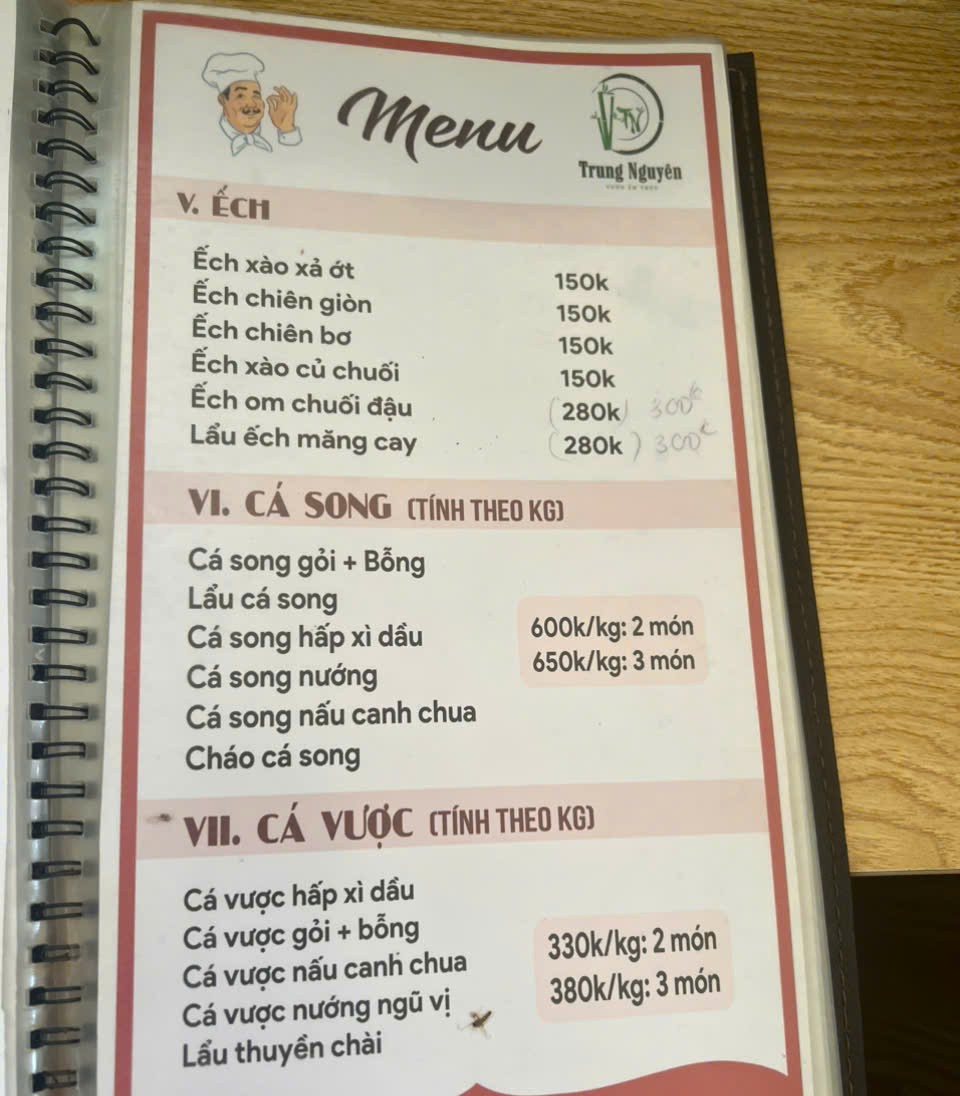 Menu
TN
Trung Nguyên
V. ẾCH
Ếch xào xả ớt 150k
Ếch chiên giòn 150k
Ếch chiên bơ 150k
Ếch xào củ chuối 150k
Ếch om chuối đậu (280k) 300k
Lẩu ếch măng cay (280k) 300k
VI. CÁ SONG (TÍNH THEO KG)
Cá song gỏi + Bỗng
Lẩu cá song
Cá song hấp xì dầu
Cá song nướng
Cá song nấu canh chua
Cháo cá song
600k/kg: 2 món
650k/kg: 3 món
VII. CÁ VƯỢC (TÍNH THEO KG)
Cá vược hấp xì dầu
Cá vược gỏi + bỗng
Cá vược nấu canh chua
Cá vược nướng ngũ vị
Lẩu thuyền chài
330k/kg: 2 món
380k/kg: 3 món